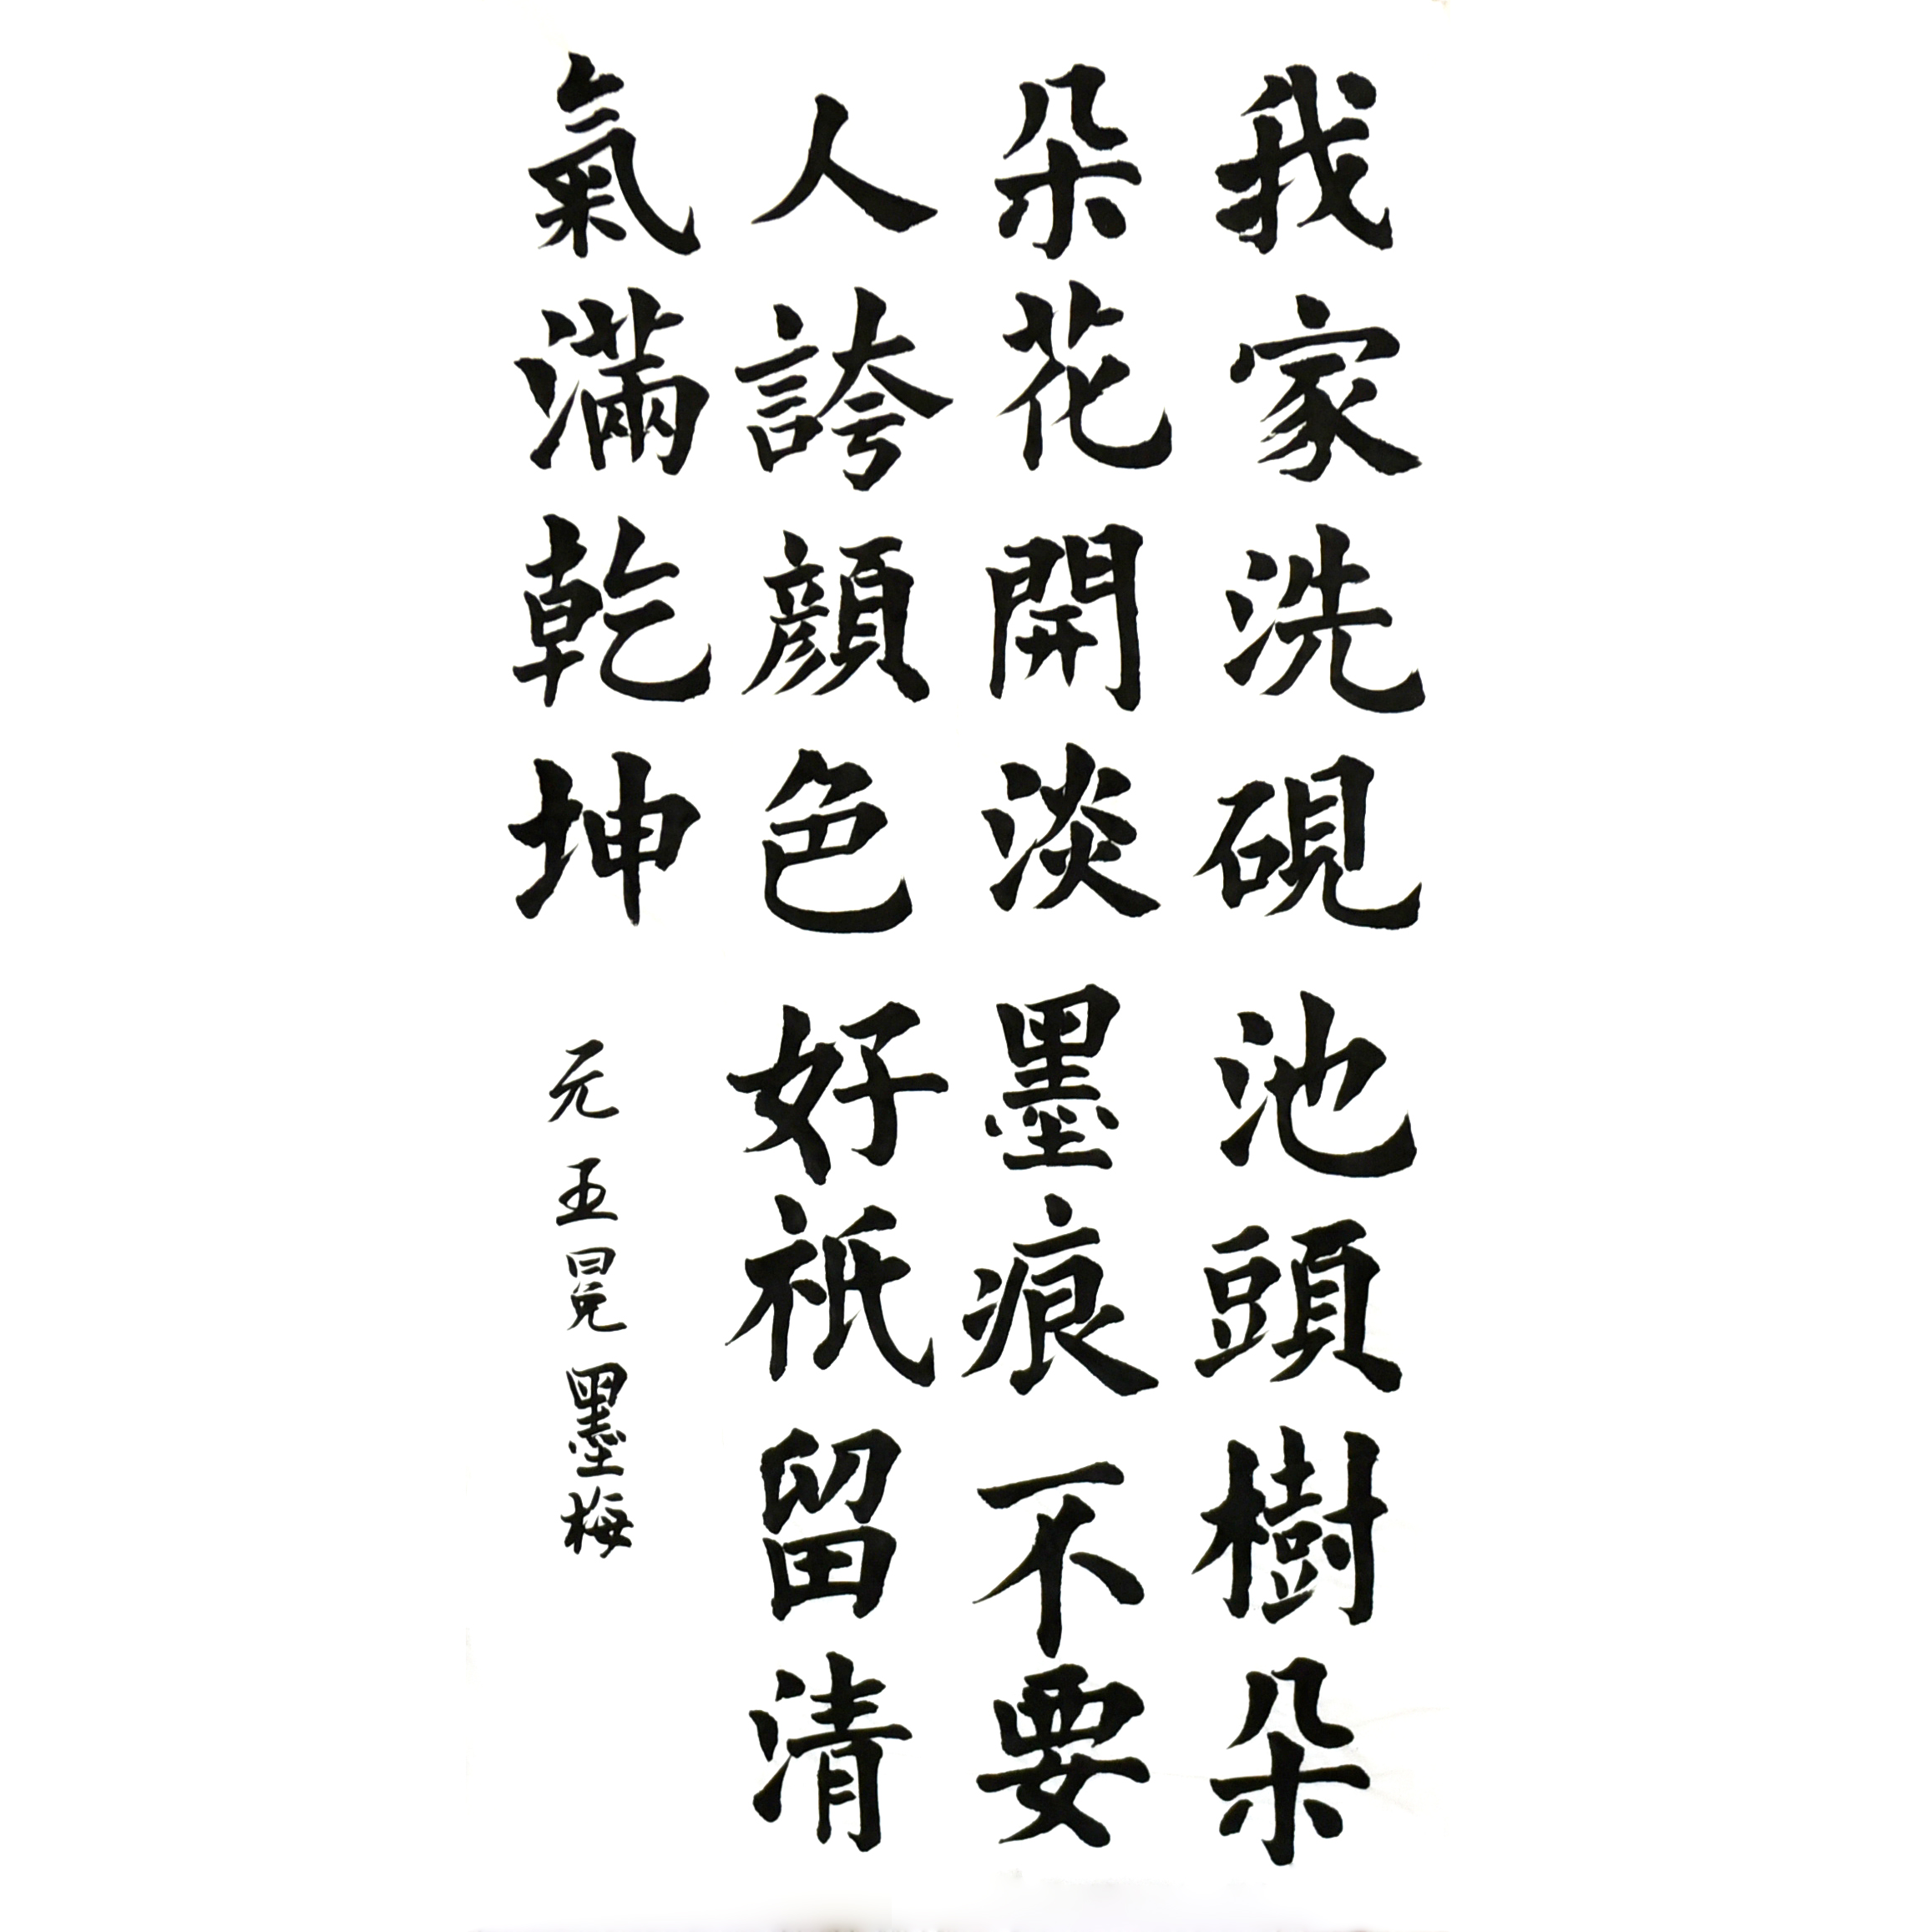 我家洗硯池頭樹朵
朵花開淡墨痕不要
人誇顏色好祇留清
氣滿乾坤
元 王冕 墨梅